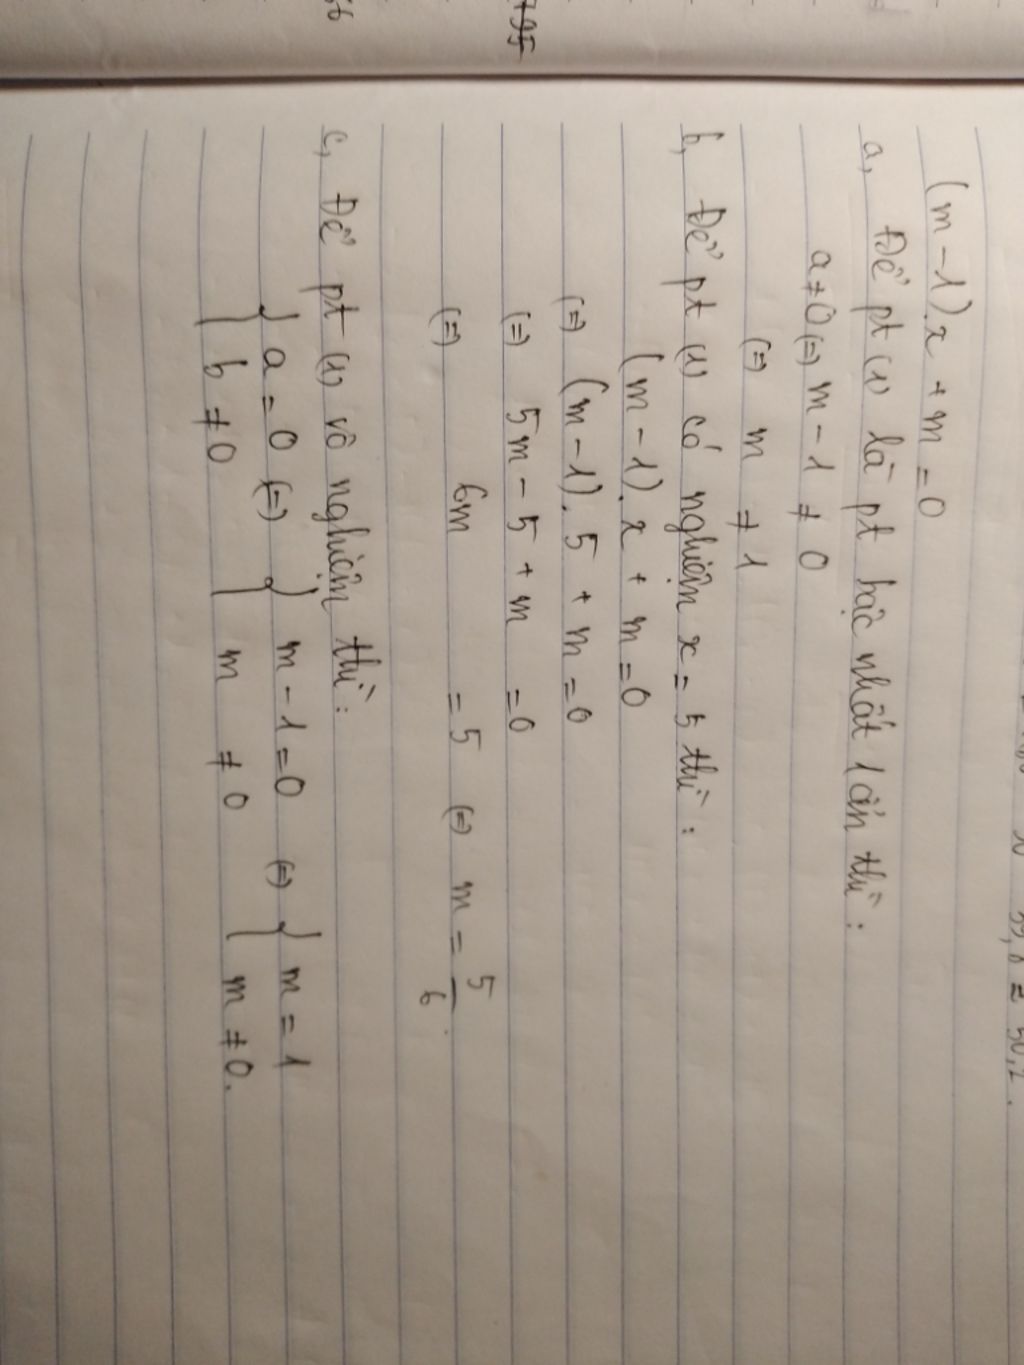 (m - 1).x + m = 0
a, Để pt (1) là pt bậc nhất 1 ẩn thì:
a ≠ 0 (=) m - 1 ≠ 0
(=) m ≠ 1
b, Để pt (1) có nghiệm x = 5 thì:
(m - 1).x + m = 0
(=) (m - 1).5 + m = 0
(=) 5m - 5 + m = 0
(=) 6m = 5 (=) m = 5/6.
c, Để pt (1) vô nghiệm thì:
{ a = 0 (=) { m - 1 = 0 (=) { m = 1
{ b ≠ 0 { m ≠ 0 { m ≠ 0.
66
795
= 50,2.